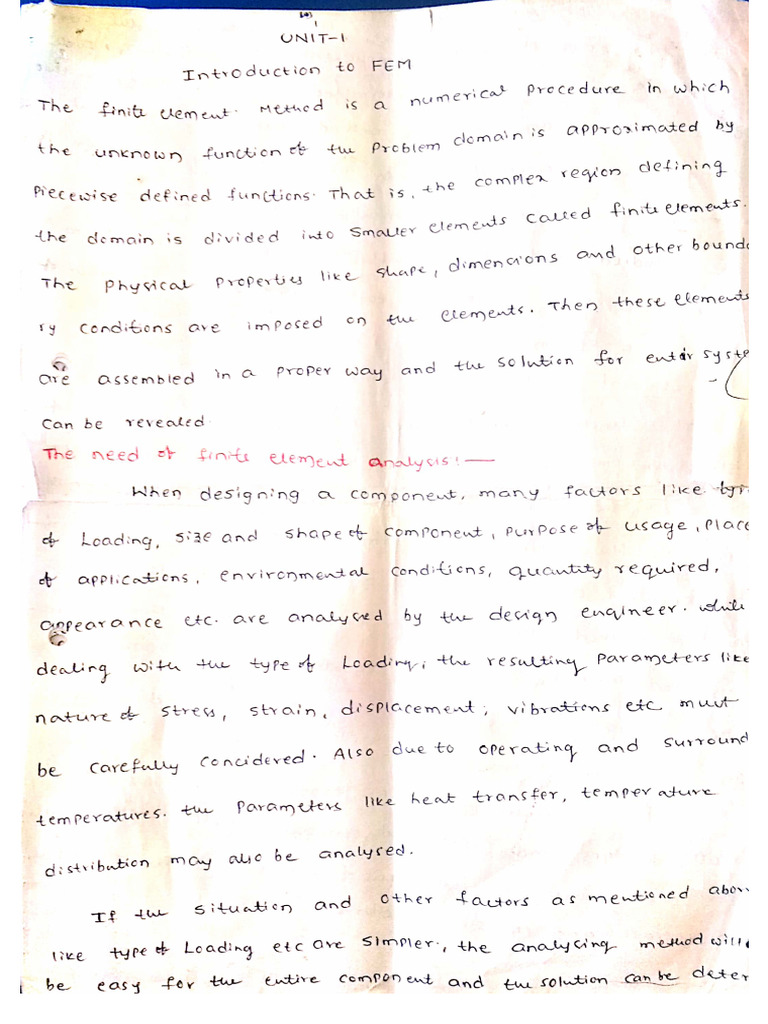 UNIT-1
Introduction to FEM
The finite element Method is a numerical procedure in which
the unknown function of the problem domain is approximated by
Piecewise defined functions. That is, the complex region defining
the domain is divided into smaller elements called finite elements.
The Physical Properties like shape, dimensions and other bounda
ry conditions are imposed on the elements. Then these elements
are assembled in a proper way and the solution for entir syste
Can be revealed.
The need of finite element analysis:—
When designing a component, many factors like typ
of Loading, size and shape of component, purpose of usage, place
of applications, environmental conditions, quantity required,
appearance etc. are analysed by the design engineer. while
dealing with the type of Loading, the resulting parameters like
nature of stress, strain, displacement, vibrations etc must
be carefully concidered. Also due to operating and surround
temperatures. the parameters like heat transfer, temperature
distribution may also be analysed.
If the situation and other factors as mentioned abov
like type of Loading etc are simpler, the analysing method will
be easy for the entire component and the solution can be deter